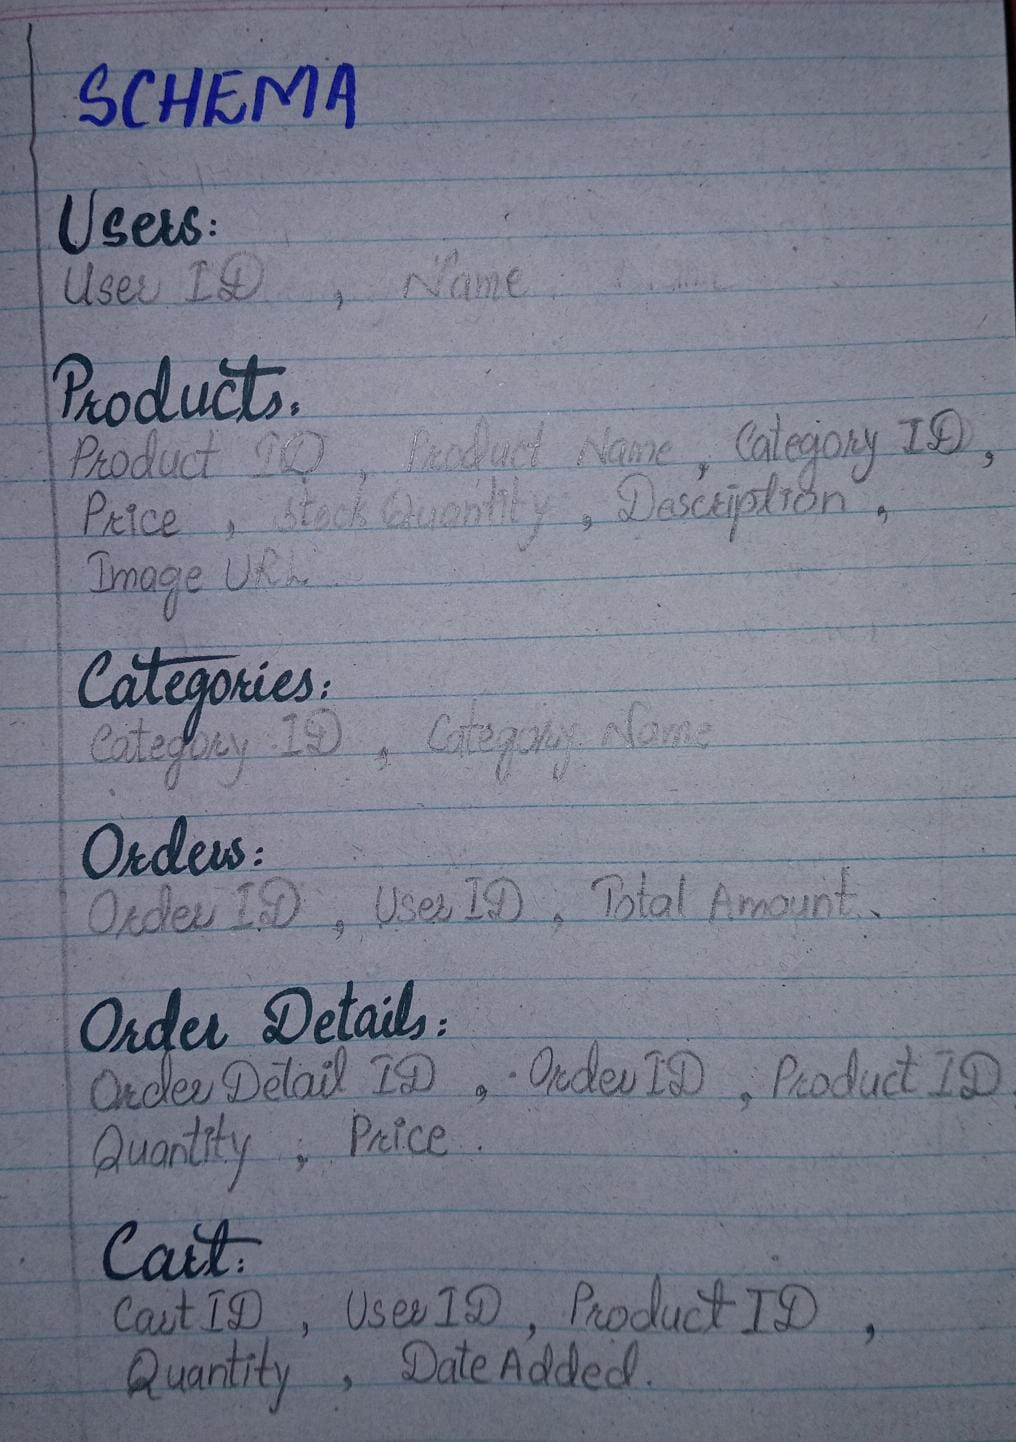 SCHEMA
Users:
User ID , Name
Products:
Product ID , Product Name , Category ID ,
Price , Stock Quantity , Description ,
Image URL
Categories:
Category ID , Category Name
Orders:
Order ID , User ID , Total Amount .
Order Details:
Order Detail ID , Order ID , Product ID
Quantity , Price .
Cart:
Cart ID , User ID , Product ID ,
Quantity , Date Added .